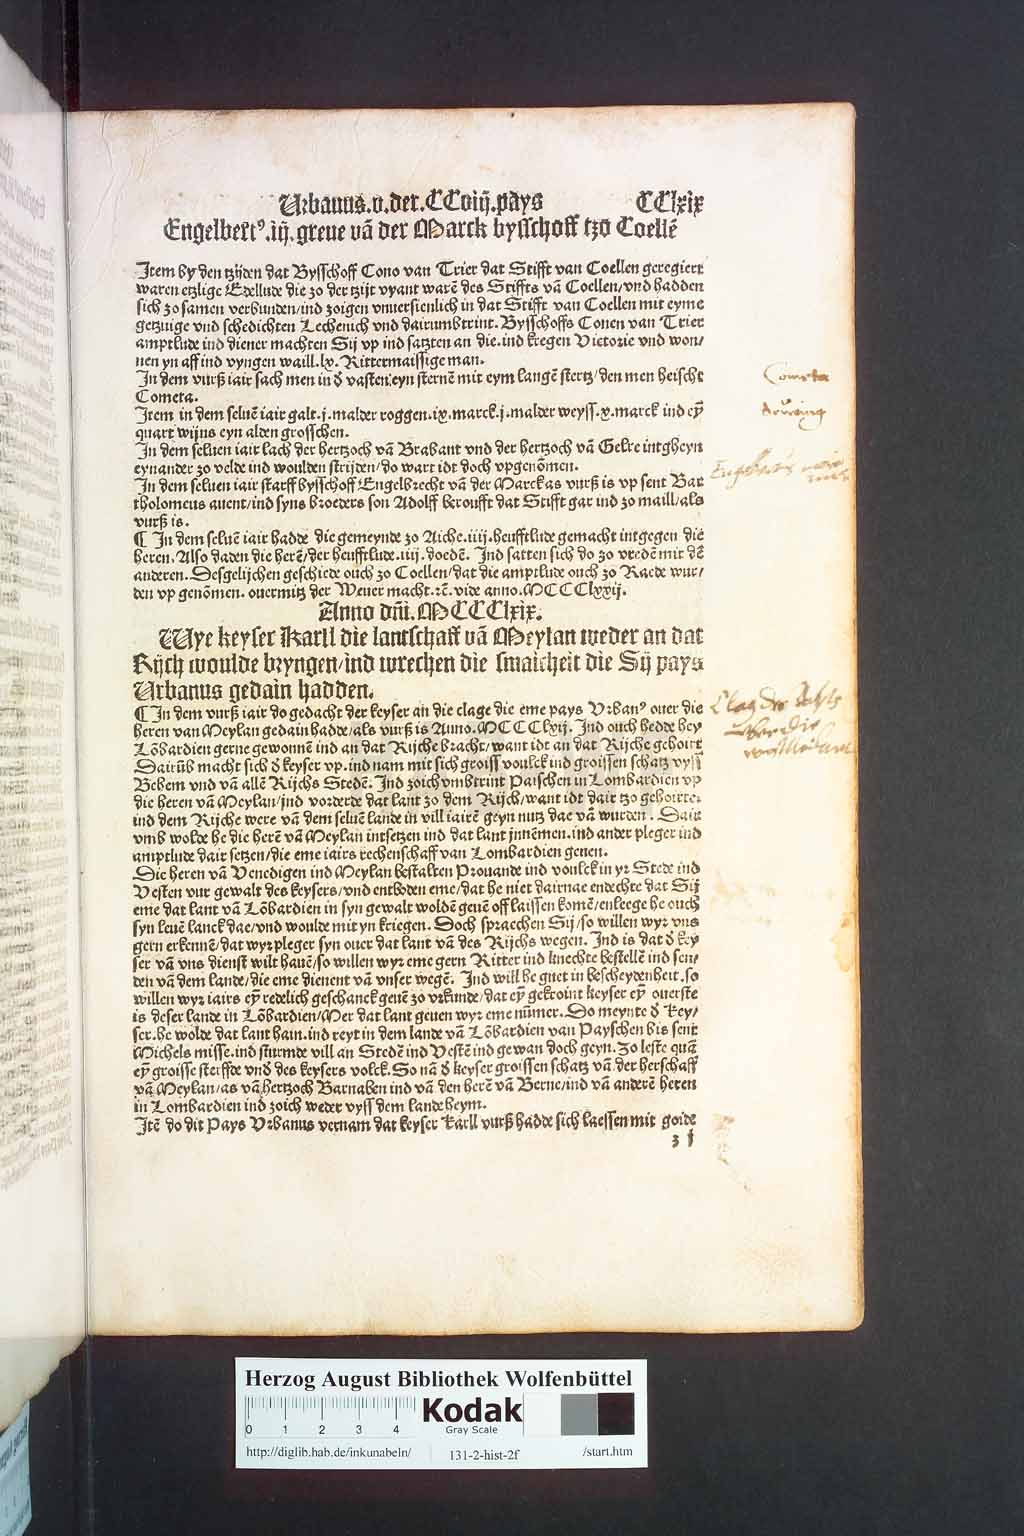 Urbanus.v.der.CCviij.pays CClxix
Engelbertꝰ.iij.greue vā der Marck bysschoff tzo Coellē
Item by den tzijden dat Bysschoff Cono van Trier dat Stifft van Coellen geregiert
waren etzlige Edellude die zo der tzijt vyant warē des Stiffts vā Coellen/vnd hadden
sich zo samen verbunden/ind zoigen vnuersienlich in dat Stifft van Coellen mit eyme
getzuige vnd schedichten Lechenich vnd dairumbtrint. Bysschoffs Conen van Trier
amptlude ind diener machten Sij vp ind satzten an die.ind kregen Victorie vnd won/
nen yn aff ind vyngen waill.lx.Rittermaissige man.
In dem vurß iair sach men in d̄ vasten eyn sternē mit eym langē stertz/den men heischt
Cometa.
Item in dem seluē iair galt.j.malder roggen.ix.marck.j.malder weyss.x.marck ind eȳ
quart wijns eyn alden grosschen.
In dem seluen iair lach der hertzoch vā Brabant vnd der hertzoch vā Gelre intgheyn
eynander zo velde ind woulden strijden/do wart idt doch vpgenōmen.
In dem seluen iair starff bysschoff Engelbrecht vā der Marck as vurß is vp sent Bar
tholomeus auent/ind syns broeders son Adolff beroufft dat Stifft gar ind zo maill/als
vurß is.
¶ In dem seluē iair hadde die gemeynde zo Aiche.iiij.heufftlude gemacht intgegen die
heren. Also daden die herē/der heufftlude.iiij.doedē. Ind satten sich do zo vredē mit dē
anderen. Desgelijchen geschiede ouch zo Coellen/dat die amptlude ouch zo Raede wur/
den vp genōmen. ouermitz der Weuer macht.ꝛc̄.vide anno.MCCClxxij.
Anno dn̄i.MCCClxix.
Wye keyser Karll die lantschaff vā Meylan weder an dat
Rijch woulde bryngen/ind wrechen die smaicheit die Sij pays
Urbanus gedain hadden.
¶ In dem vurß iair do gedacht der keyser an die clage die eme pays Vrbanꝰ ouer die
heren van Meylan gedain hadde/als vurß is Anno.MCCClxij. Ind ouch hedde hey
Lōbardien gerne gewonnē ind an dat Rijche bracht/want idt an dat Rijche gehoirt
Dairūb macht sich d̄ keyser vp.ind nam mit sich groiss voulck ind groissen schatz vyss
Behem vnd vā allē Rijchs Stedē. Ind zoich vmbtrint Paischen in Lombardien vp
die heren vā Meylan/jnd vorderde dat lant zo dem Rijch/want idt dair tzo gehoirte.
ind dem Rijche were vā dem seluē lande in vill iairē geyn nutz dae vā wurden. Dair
vmb wolde he die herē vā Meylan intsetzen ind dat lant jnnēmen.ind ander pleger ind
amptlude dair setzen/die eme iairs rechenschaff van Lombardien geuen.
Die heren vā Venedigen ind Meylan bestalten Prouande ind voulck in yr Stede ind
Vesten vur gewalt des keysers/vnd entboden eme/dat he niet dairnae endechte dat Sij
eme dat lant vā Lōbardien in syn gewalt woldē geuē off laissen komē/enleege he ouch
syn leuē lanck dae/vnd woulde mit yn kriegen. Doch spraechen Sij/so willen wyr vns
gern erkennē/dat wyr pleger syn ouer dat lant vā des Rijchs wegen. Ind is dat d̄ key
ser vā vns dienst wilt hauē/so willen wyr eme gern Ritter ind knechte bestellē ind sen/
den vā dem lande/die eme dienent vā vnser wegē. Ind will he guet in bescheydenheit.so
willen wyr iairs eȳ redelich geschanck geuē zo vrkunde/dat eȳ gekroint keyser eȳ ouerste
is deser lande in Lōbardien/Mer dat lant geuen wyr eme nūmer. Do meynte d̄ key/
ser.he wolde dat lant hain.ind reyt in dem lande vā Lōbardien van Payschen bis sent
Michels misse.ind sturmde vill an Stedē ind Vestē ind gewan doch geyn. Zo leste quā
eȳ groisse sterffde vnd̄ des keysers volck. So nā d̄ keyser groissen schatz vā.der herschaff
vā Meylan/as vā hertzoch Barnaben ind vā den herē vā Berne/ind vā anderē heren
in Lombardien ind zoich weder vyss dem lande heym.
Itē do dit Pays Vrbanus vernam dat keyser Karll vurß hadde sich laessen mit goide
z j
Cometa
Herzog August Bibliothek Wolfenbüttel
0 1 2 3 4
Kodak
Gray Scale
http://diglib.hab.de/inkunabeln/ 131-2-hist-2f /start.htm